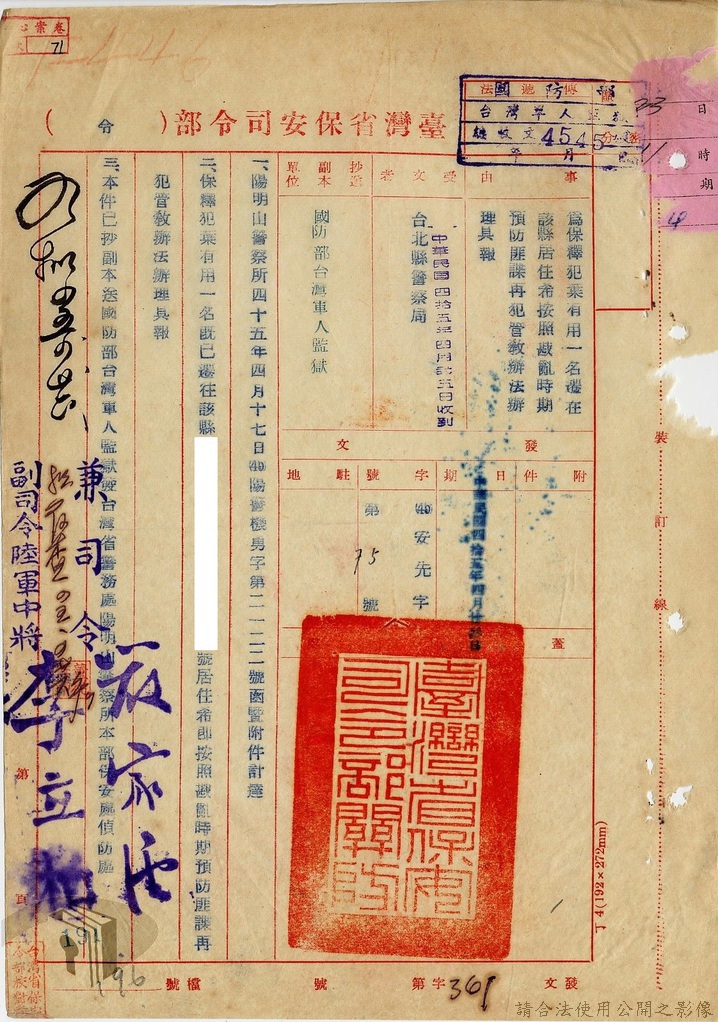 卷案
71
臺灣省保安司令部(令)
日
時
期
23
4545
事由
為保釋犯葉有用一名遷在
該縣居住希按照戡亂時期
預防匪諜再犯管教辦法辦
理具報
受文者
台北縣警察局
中華民國四拾五年四月廿五日收到
抄送副本單位
國防部台灣軍人監獄
發文
附件
日期
字號
駐地
(45)安先字
第 75 號
蓋
一、陽明山警察所四十五年四月十七日(45)陽警機勇字第二一一二二號函暨附件計達
二、保釋犯葉有用一名既已遷往該縣
號居住希即按照戡亂時期預防匪諜再
犯管教辦法辦理具報
三、本件已抄副本送國防部台灣軍人監獄暨台灣省警務處陽明山警察所本部保安處偵防處
兼司令 嚴家淦
副司令陸軍中將 李立柏
臺灣省保安司令部關防
裝訂線
丁4(192×272mm)
第 頁
191
196
發文 字第 361 號
檔號
請合法使用公開之影像